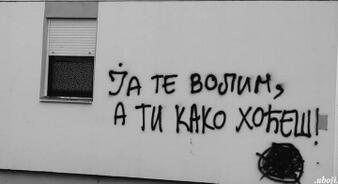 ЈА ТЕ ВОЛИМ,
А ТИ КАКО ХОЂЕШ!
.uboji.